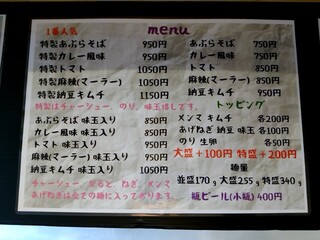 1番人気
menu
特製あぶらそば 950円
特製カレー風味 950円
特製トマト 1050円
特製麻辣(マーラー) 1050円
特製納豆キムチ 1150円
特製はチャーシュー、のり、味玉増しです。
あぶらそば 味玉入り 850円
カレー風味 味玉入り 850円
トマト 味玉入り 950円
麻辣(マーラー) 味玉入り 950円
納豆キムチ 味玉入り 1050円
チャーシュー、ねぎ、メンマ
あげねぎは全ての麺に入っております。
あぶらそば 750円
カレー風味 750円
トマト 850円
麻辣(マーラー) 850円
納豆キムチ 950円
トッピング
メンマ キムチ 各200円
あげねぎ 納豆 味玉 各100円
のり 生卵 各50円
大盛+100円 特盛+200円
麺量
並盛170g 大盛255g 特盛340g
瓶ビール(小瓶) 400円